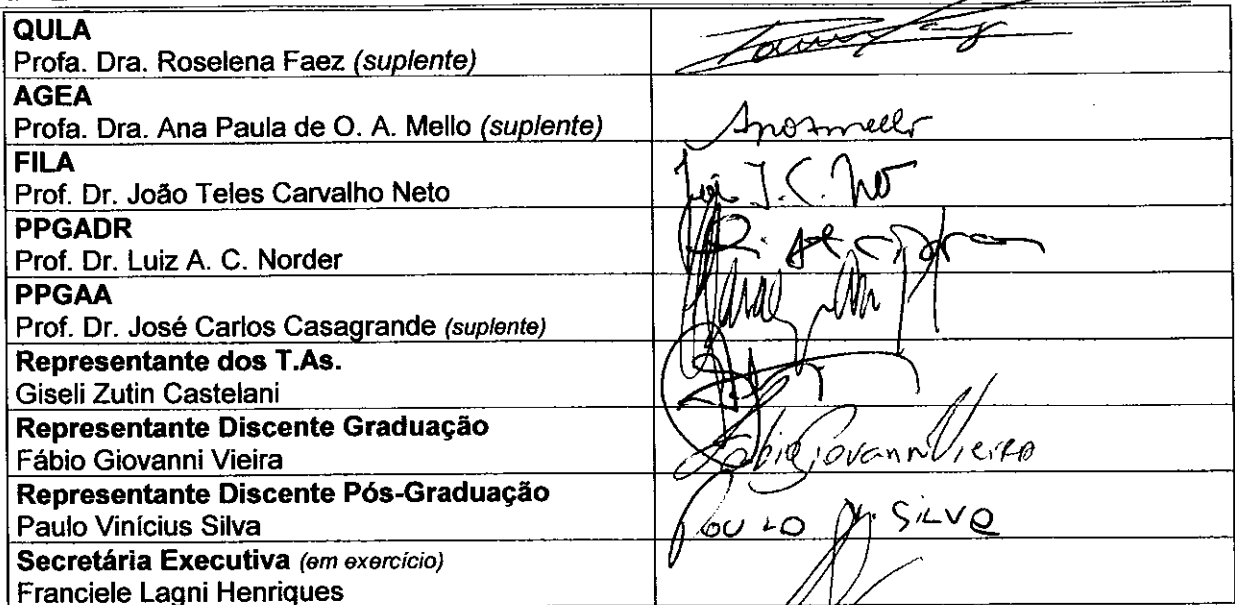 QULA
Profa. Dra. Roselena Faez (suplente)
AGEA
Profa. Dra. Ana Paula de O. A. Mello (suplente)
FILA
Prof. Dr. João Teles Carvalho Neto
PPGADR
Prof. Dr. Luiz A. C. Norder
PPGAA
Prof. Dr. José Carlos Casagrande (suplente)
Representante dos T.As.
Giseli Zutin Castelani
Representante Discente Graduação
Fábio Giovanni Vieira
Fábio Giovanni Vieira
Representante Discente Pós-Graduação
Paulo Vinícius Silva
Paulo V. Silva
Secretária Executiva (em exercício)
Franciele Lagni Henriques